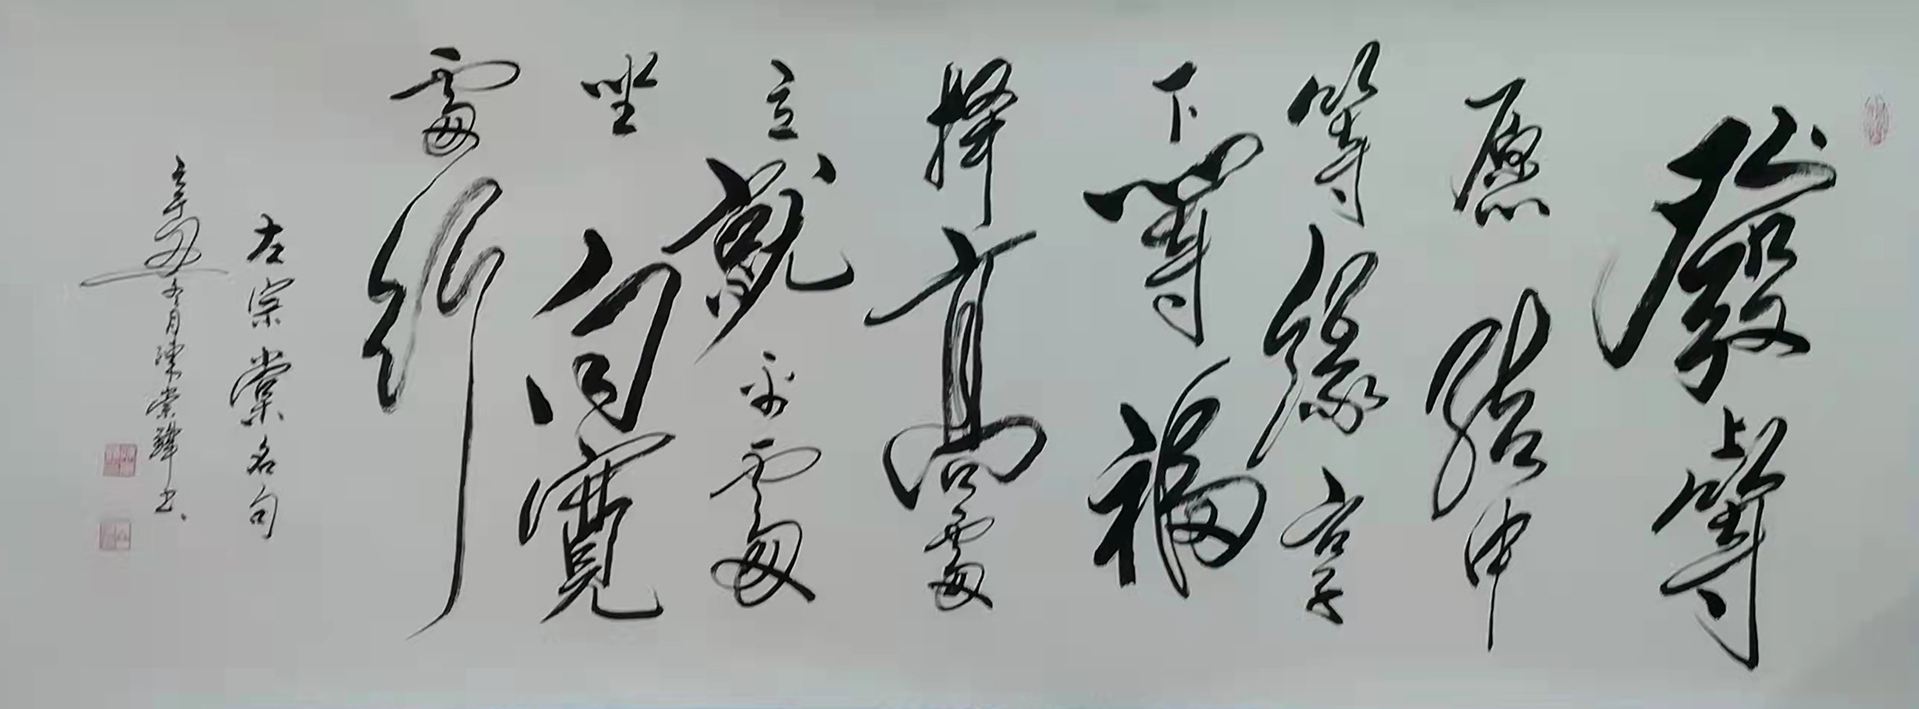 發上等
愿結中
等緣享
下等福
擇高處
立就平處
坐向寬
處行
左宗棠名句
辛丑冬月陳書